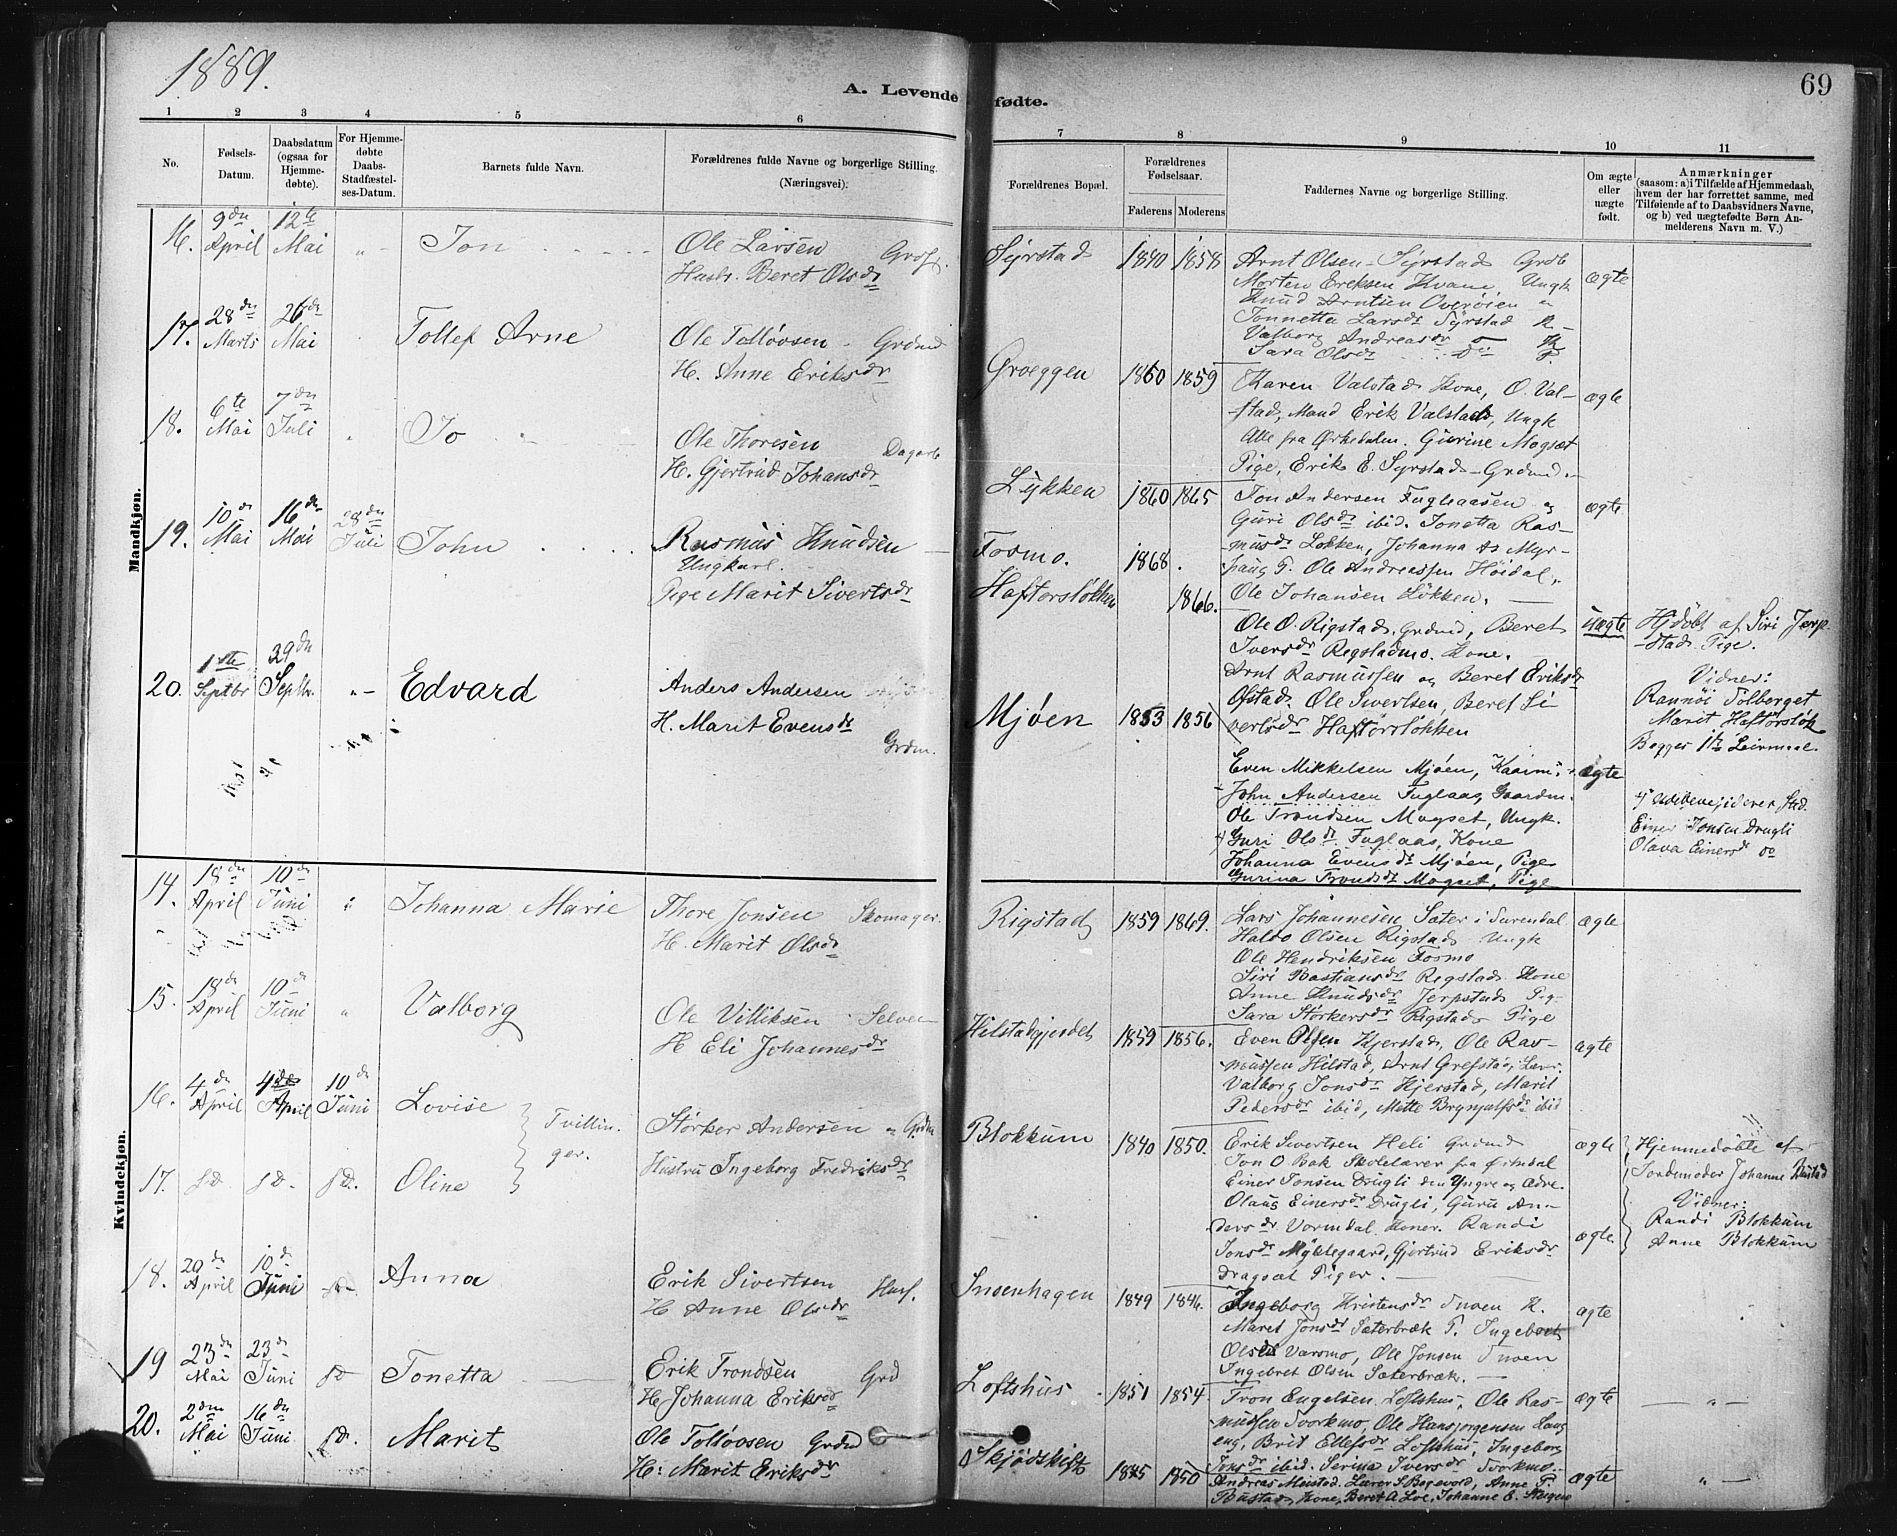 1889.
69
A. Levende fødte.
1 2 3 4 5 6 7 8 9 10 11
No.
Fødsels-
Datum.
Daabsdatum
(ogsaa for
Hjemme-
døbte).
For Hjemme-
døbte
Daabs-
Stadfæstel-
ses-Datum.
Barnets fulde Navn.
Forældrenes fulde Navne og borgerlige Stilling.
(Næringsvei).
Forældrenes Bopæl.
Forældrenes
Fødselsaar.
Faderens Moderens
Faddernes Navne og borgerlige Stilling.
Om ægte
eller
uægte
født.
Anmærkninger
(saasom: a) i Tilfælde af Hjemmedaab,
hvem der har forrettet samme, med
Tilføiende af to Daabsvidners Navne,
og b) ved uægtefødte Børn An-
melderens Navn m. V.)
Mandkjøn.
16. 9de April 12te Mai " Jon Ole Larsen
Husb. Beret Olsdr
Syrstad 1840 1858 ægte
Arnt Olsen Syrstad
Morten Eriksen Kvame, Ungk
Knud Arntsen Overøien
Jonnetta Larsdr Syrstad
Valborg Andreasdr
Sara Olsdr
17. 28de Marts 26de Mai Tollef Arne Ole Tolløvsen Grdmd
H. Anne Eriksdr
Grøggen 1860 1859 ægte
Karen Valstad Kone, O. Val-
stad, Mand Erik Valstad, Ungk
Alle fra Ørkedalen. Gurine Mogset
Pige, Erik E. Syrstad Grdmd.
18. 6te Mai 7de Juli " Jo Ole Thoresen Dagarb
H. Gjertrud Johansdr
Lykken 1860 1865 ægte
Jon Andersen Fuglaasen og
Guri Olsdr ibid. Jonetta Ras-
musdr Løkken, Johanna As Myr-
haug P. Ole Andreassen Høidal,
Ole Johansen Løkken.
19. 10de Mai 16de Mai 28de Juli John Rasmus Knudsen
Ungkarl.
Pige Marit Sivertsdr
Fosmo. 1868.
Haftorsløkken 1866. uægte
Ole O. Rigstad, Grdmd, Beret
Iversdr Rigstadmo. Kone.
Arnt Rasmussen og Beret Eriksdr
Ofstad. Ole Sivertsen, Beret Si-
vertsdr Haftorsløkken
Hjdøbt af Siri Jerp-
stad Pige.
Vidner:
Rannøi Solberget
Marit Haftorsløk
Begges 1te Leirmaal.
20. 1ste Septbr 29de Septbr " Edvard Anders Andersen
H. Marit Evensdr
Grdm.
Mjøen 1853 1856 ægte
Even Mikkelsen Mjøen, Kaarm.
John Andersen Fuglaas, Gaardm.
Ole Trondsen Mogset, Ungk.
Guri Olsdr Fuglaas, Kone
Johanna Evensdr Mjøen, Pige
Gurina Trondsdr Mogset, Pige
Einer Jonsen Drugli
Olava Einersdr do
Kvindekjøn.
14. 18de April 10de Juni " Johanna Marie Thore Jonsen Skomager.
H. Marit Olsdr
Rigstad 1859 1869. ægte
Lars Johannesen Sæter i Surendal
Haldo Olsen Rigstad Ungk
Ole Hendriksen Fosmo
Siri Bastiansdr Rigstad Kone
Anne Knudsdr Jerpstad Pige
Sara Størkersdr Rigstad Pige
15. 18de April 10de Juni " Valborg Ole Villiksen Selveier
H Eli Johannesdr
Hilstadgjerdet 1859 1856. ægte
Even Olsen Hjerstad, Ole Ras-
mussen Hilstad, Arnt Grefstad, Lærer.
Valborg Jonsdr Hjerstad, Marit
Pedersdr ibid, Mitte Brynjulfsdr ibid
16. 4de April 4de April 10de Juni Lovise Tvillin-
ger.
Størker Andersen Grdm
Hustru Ingeborg Fredriksdr
Blokkum 1840 1850. ægte
Erik Sivertsen Heli Grdmd
Jon O Bak Skolelærer fra Ørkedal
Einer Jonsen Drugli den Yngre og Ædre.
Olaug Einersdr Drugli, Guru An-
dersdr Vormdal Koner. Randi
Jonsdr Myklegaard, Gjertrud Eriksdr
Dragset Piger.
Hjemmedøbte af
Jordemoder Johanne Rustad
Vidner:
Randi Blokkum
Anne Blokkum
17. do do. do. Oline ægte
18. 20de April 10de Juni Anna Erik Sivertsen Husf.
H Anne Olsdr
Snoenhagen 1849 1846. ægte
Ingeborg Kristensdr Snoen K.
Maret Jonsdr Sæterbræk P. Ingebret
Olsen Varsmo, Ole Jonsen Snoen
Ingebret Olsen Sæterbræk.
19 23de Mai 23de Juni Jonetta Erik Trondsen Grd
H Johanna Eriksdr
Loftshus 1851 1854. ægte
Tron Engelsen Loftshus, Ole Ras-
mussen Svorkmo, Ole Hansjorgensen Lang
eng, Brit Ellefsdr Loftshus, Ingeborg
Jonsdr ibid. Serina Iversdr Svorkmo.
20. 2den Mai 16de Juni do. Marit Ole Tolløvsen Grdm
H: Marit Eriksdr
Skjødskift 1845 1850 ægte
Andreas Meistad. Lærer S Bogevold, Anne P.
Rustad, Kone, Beret A. Loe, Johanne E.